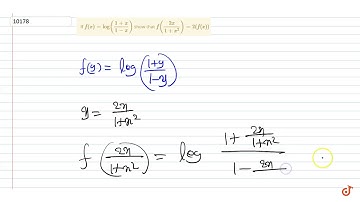 10178
f(x) = log((1 + x)/(1 − x)) f(2x/(1 + x²)) = 2(f(x))
f(y) = log((1+y)/(1-y))
y = 2x/(1+x²)
f(2x/(1+x²)) = log (1 + 2x/(1+x²))/(1 - 2x/